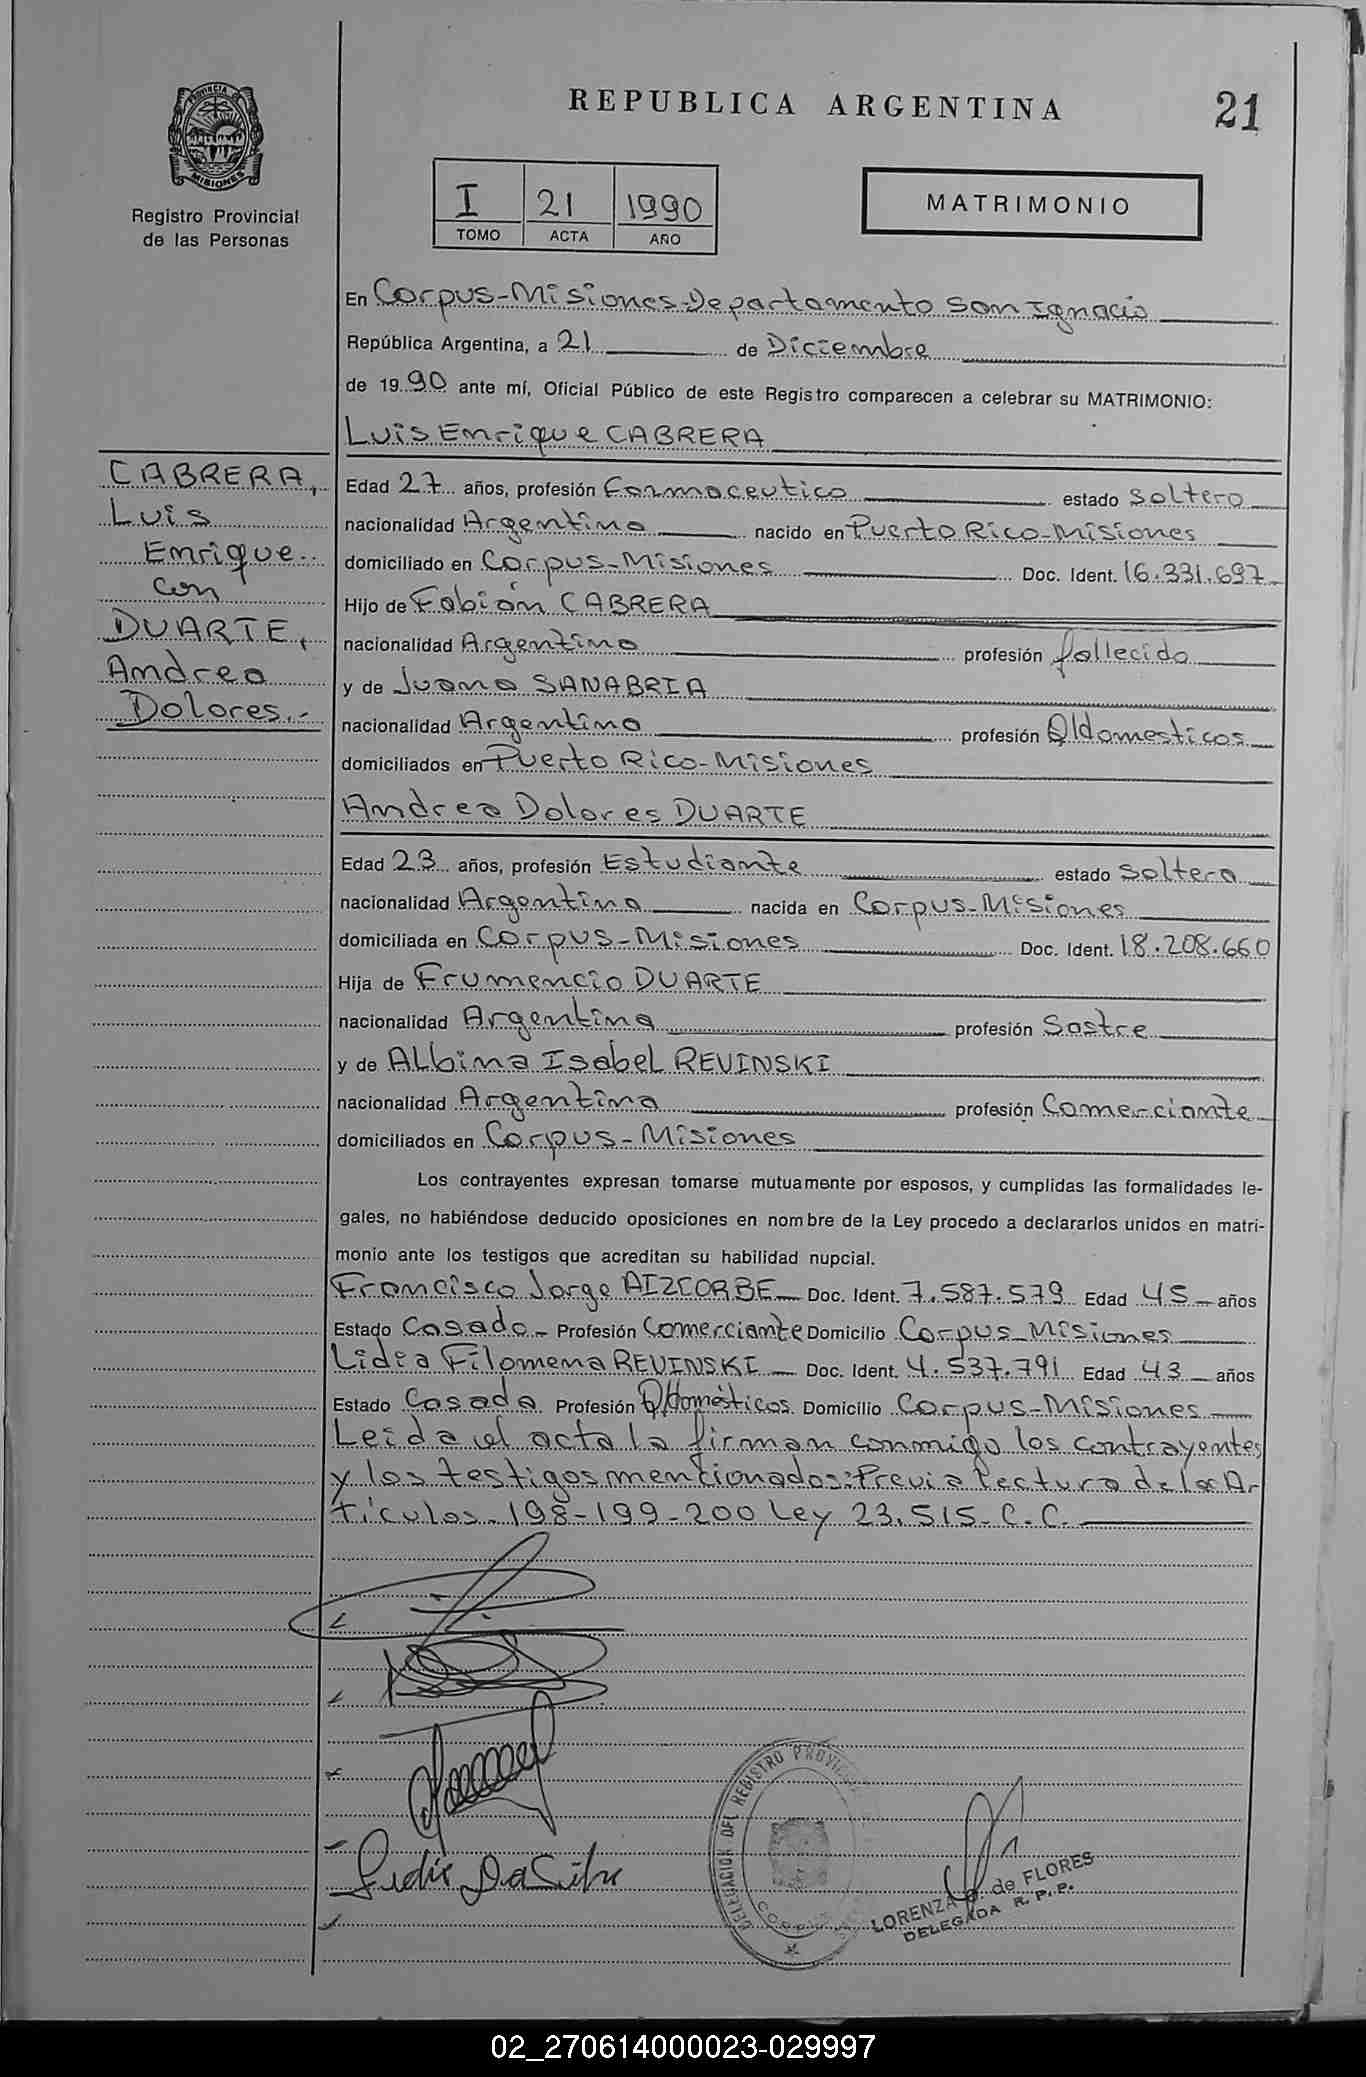 REPUBLICA ARGENTINA
21
PROVINCIA
MISIONES
Registro Provincial
de las Personas
I 21 1990
TOMO ACTA AÑO
MATRIMONIO
En Corpus-Misiones-Departamento San Ignacio
República Argentina, a 21 de Diciembre
de 1990 ante mí, Oficial Público de este Registro comparecen a celebrar su MATRIMONIO:
Luis Enrique CABRERA
CABRERA,
Luis
Enrique
con
DUARTE,
Andrea
Dolores.-
Edad 27 años, profesión Farmaceutico estado Soltero
nacionalidad Argentina nacido en Puerto Rico-Misiones
domiciliado en Corpus-Misiones Doc. Ident. 16.331.697
Hijo de Fabián CABRERA
nacionalidad Argentina profesión fallecido
y de Juana SANABRIA
nacionalidad Argentina profesión Q/domesticos
domiciliados en Puerto Rico-Misiones
Andrea Dolores DUARTE
Edad 23 años, profesión Estudiante estado Soltera
nacionalidad Argentina nacida en Corpus-Misiones
domiciliada en Corpus-Misiones Doc. Ident. 18.208.660
Hija de Frumencio DUARTE
nacionalidad Argentina profesión Sastre
y de Albina Isabel REVINSKI
nacionalidad Argentina profesión Comerciante
domiciliados en Corpus-Misiones
Los contrayentes expresan tomarse mutuamente por esposos, y cumplidas las formalidades le-
gales, no habiéndose deducido oposiciones en nombre de la Ley procedo a declararlos unidos en matri-
monio ante los testigos que acreditan su habilidad nupcial.
Francisco Jorge AIZCORBE Doc. Ident. 7.587.579 Edad 45 años
Estado Casado Profesión Comerciante Domicilio Corpus-Misiones
Lidia Filomena REVINSKI Doc. Ident. 4.537.791 Edad 43 años
Estado Casada Profesión Q/domésticos Domicilio Corpus-Misiones
Leida el acta la firman conmigo los contrayentes
y los testigos mencionados: Previa lectura de los Ar-
ticulos 198-199-200 Ley 23.515-C.C.
Lidia Da Silva
DELEGACION DEL REGISTRO PROVINCIAL
CORPUS
LORENZA de FLORES
DELEGADA R. P. P.
02_270614000023-029997